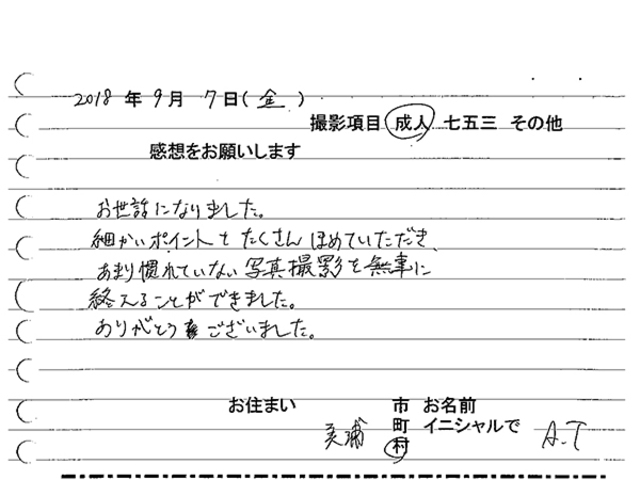 2018年9月7日(金)
撮影項目 成人 七五三 その他
感想をお願いします
お世話になりました。
細かいポイントをたくさんほめていただき、
あまり慣れていない写真撮影を無事に
終えることができました。
ありがとうございました。
お住まい 市 お名前
美浦 町 イニシャルで A.T
村